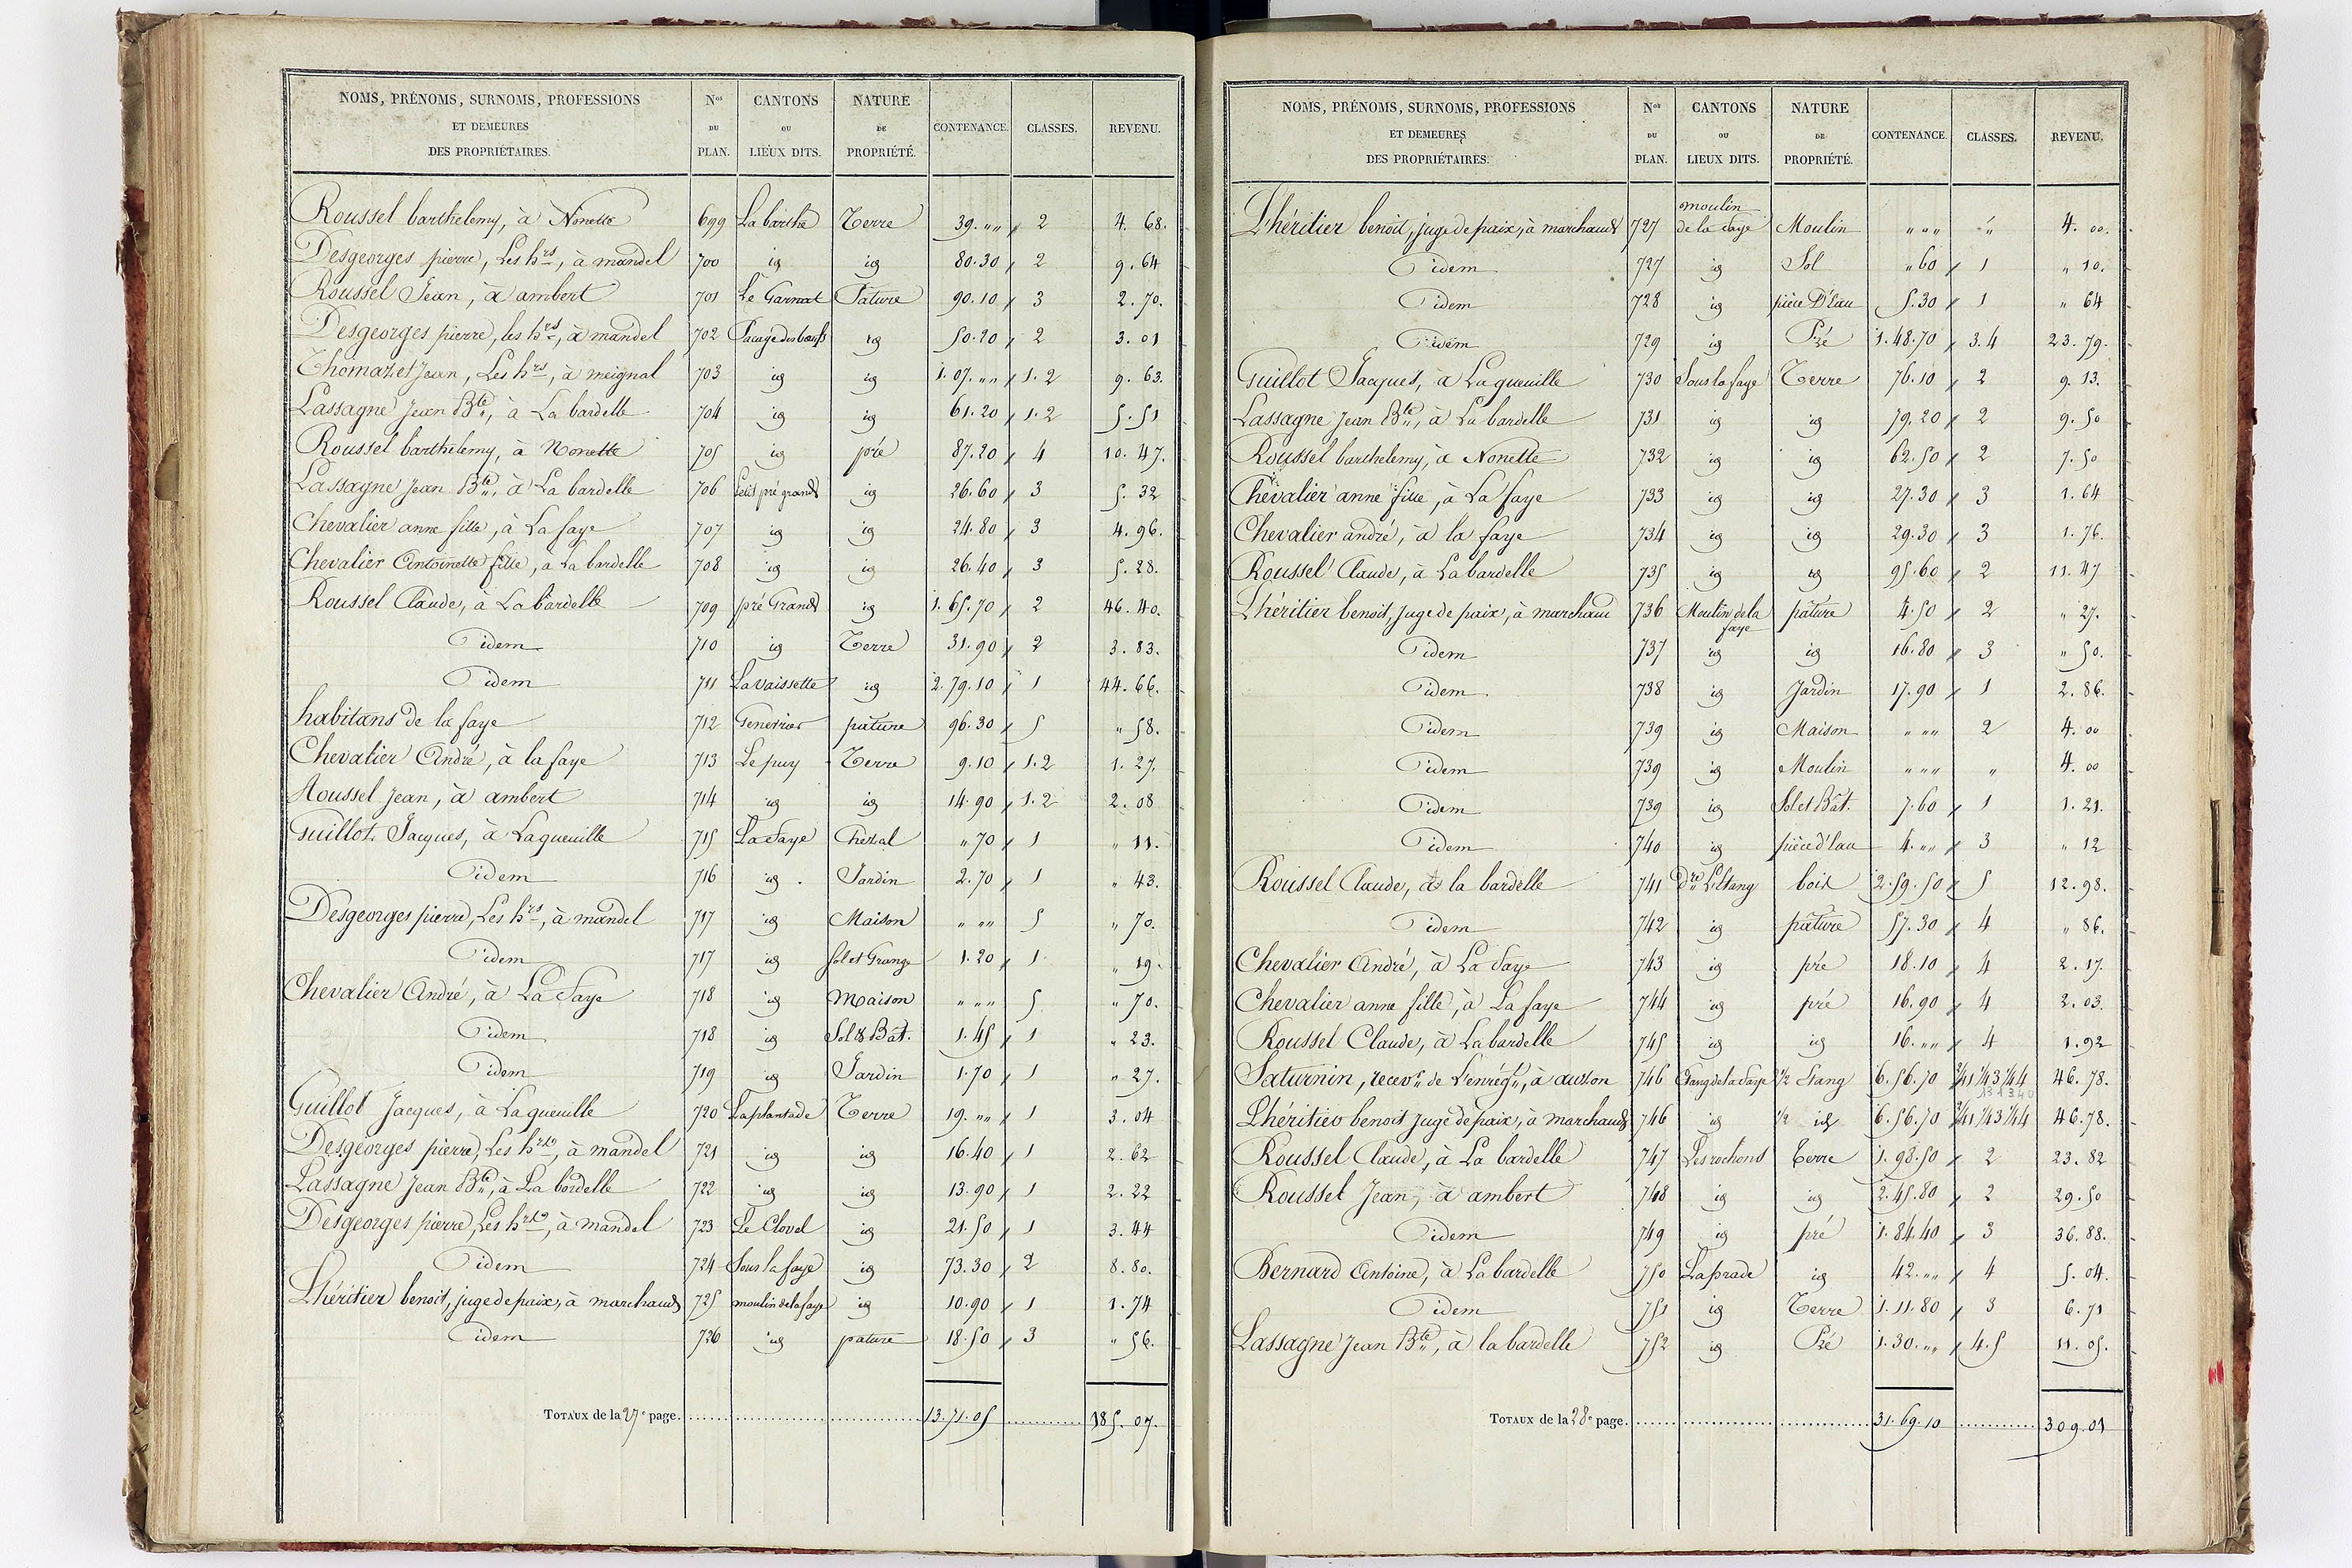 NOMS, PRÉNOMS, SURNOMS, PROFESSIONS ET DEMEURES DES PROPRIÉTAIRES. Nos DU PLAN. CANTONS OU LIEUX DITS. NATURE DE PROPRIÉTÉ. CONTENANCE. CLASSES. REVENU.
Roussel barthelemy, à Nonette 699 La barthe Terre 39. „ „ 2 4. 68.
Desgeorges pierre, Les hrs, à mandel 700 id id 80. 30 2 9. 64
Roussel Jean, à ambert 701 Le Garnat Pature 90. 10 3 2. 70.
Desgeorges pierre, les hrs, à mandel 702 Pacage des bœufs id 50. 20 2 3. 01
Thomazet Jean, Les hrs, à meignal 703 id id 1. 07. „ „ 1. 2 9. 63.
Lassagne Jean Bte, à La bardelle 704 id id 61. 20 1. 2 5. 51
Roussel barthelemy, à Nonette 705 id pré 87. 20 4 10. 47.
Lassagne Jean Bte, à La bardelle 706 Petit pré grand id 26. 60 3 5. 32
Chevalier anne fille, à La faye 707 id id 24. 80 3 4. 96.
Chevalier Antoinette fille, à La bardelle 708 id id 26. 40 3 5. 28.
Roussel Claude, à La bardelle 709 pré Grand id 1. 65. 70 2 46. 40.
idem 710 id Terre 31. 90 2 3. 83.
idem 711 La vaissette id 2. 79. 10 1 44. 66.
habitans de la faye 712 pâture 96. 30 5 „ 58.
Chevalier André, à la faye 713 Le puy Terre 9. 10 1. 2 1. 27.
Roussel Jean, à ambert 714 id id 14. 90 1. 2 2. 08
Guillot Jacques, à Laqueuille 715 La Faye Chezal „ 70 1 „ 11.
idem 716 id . Jardin 2. 70 1 „ 43.
Desgeorges pierre, Les hrs, à mandel 717 id Maison „ „ „ 5 „ 70.
idem 717 id sol et Grange 1. 20 1 „ 19.
Chevalier André, à La Faye 718 id Maison „ „ „ 5 „ 70.
idem 718 id Sol & Bât. 1. 45 1 „ 23.
idem 719 id Jardin 1. 70 1 „ 27.
Guillot Jacques, à Laqueuille 720 La plantade Terre 19. „ „ 1 3. 04
Desgeorges pierre, Les hrs, à mandel 721 id id 16. 40 1 2. 62
Lassagne Jean Bte, à La bordelle 722 id id 13. 90 1 2. 22
Desgeorges pierre, Les hrs, à mandel 723 Le Clovel id 21. 50 1 3. 44
idem 724 Sous la faye id 73. 30 2 8. 80.
Lhéritier benoit, juge de paix, à marchaud 725 moulin de la faye id 10. 90 1 1. 74
idem 726 id pature 18. 50 3 „ 56.
TOTAUX de la 27e page. 13. 71. 05 185. 07.
NOMS, PRÉNOMS, SURNOMS, PROFESSIONS ET DEMEURES DES PROPRIÉTAIRES. Nos DU PLAN. CANTONS OU LIEUX DITS. NATURE DE PROPRIÉTÉ. CONTENANCE. CLASSES. REVENU.
Lhéritier benoit, juge de paix, à marchaud 727 moulin de la faye Moulin „ „ „ „ 4. 00.
idem 727 id Sol „ 60 1 „ 10.
idem 728 id pièce D'Eau 5. 30 1 „ 64
idem 729 id Pré 1. 48. 70 3. 4 23. 79.
Guillot Jacques, à Laqueuille 730 Sous la faye Terre 76. 10 2 9. 13.
Lassagne Jean Bte, à La bardelle 731 id id 79. 20 2 9. 50
Roussel barthelemy, à Nonette 732 id id 62. 50 2 7. 50
Chevalier anne fille, à La faye 733 id id 27. 30 3 1. 64
Chevalier andré, à la faye 734 id id 29. 30 3 1. 76.
Roussel Claude, à La bardelle 735 id id 95. 60 2 11. 47
Lhéritier benoit, Juge de paix, à marchaud 736 Moulin de la faye pâture 4. 50 2 „ 27.
idem 737 id id 16. 80 3 „ 50.
idem 738 id Jardin 17. 90 1 2. 86.
idem 739 id Maison „ „ „ 2 4. 00
idem 739 id Moulin „ „ „ „ 4. 00
idem 739 id Sol et Bât. 7. 60 1 1. 21.
idem 740 id pièce d'Eau 4. „ „ 3 „ 12
Roussel Claude, à la bardelle 741 Dre L'Etang bois 2. 59. 50 5 12. 98.
idem 742 id pâture 57. 30 4 „ 86.
Chevalier André, à La Faye 743 id pré 18. 10 4 2. 17.
Chevalier anne fille, à La faye 744 id pré 16. 90 4 2. 03.
Roussel Claude, à La bardelle 745 id id 16. „ „ 4 1. 92
Saturnin, recevr de L'enrégt, à auzon 746 Etang de la Faye 1/2 Etang 6. 56. 70 46. 78.
Lhéritier benoit juge de paix, à marchaud 746 id 1/2 id 6. 56. 70 46. 78.
Roussel Claude, à La bardelle 747 Les rochons Terre 1. 98. 50 2 23. 82
Roussel Jean, à ambert 748 id id 2. 45. 80 2 29. 50
idem 749 id pré 1. 84. 40 3 36. 88.
Bernard Antoine, à La bardelle 750 La prade id 42. „ „ 4 5. 04.
idem 751 id Terre 1. 11. 80 3 6. 71
Lassagne Jean Bte, à la bardelle 752 id Pré 1. 30. „ „ 4. 5 11. 05.
TOTAUX de la 28e page. 31. 69. 10 309. 01